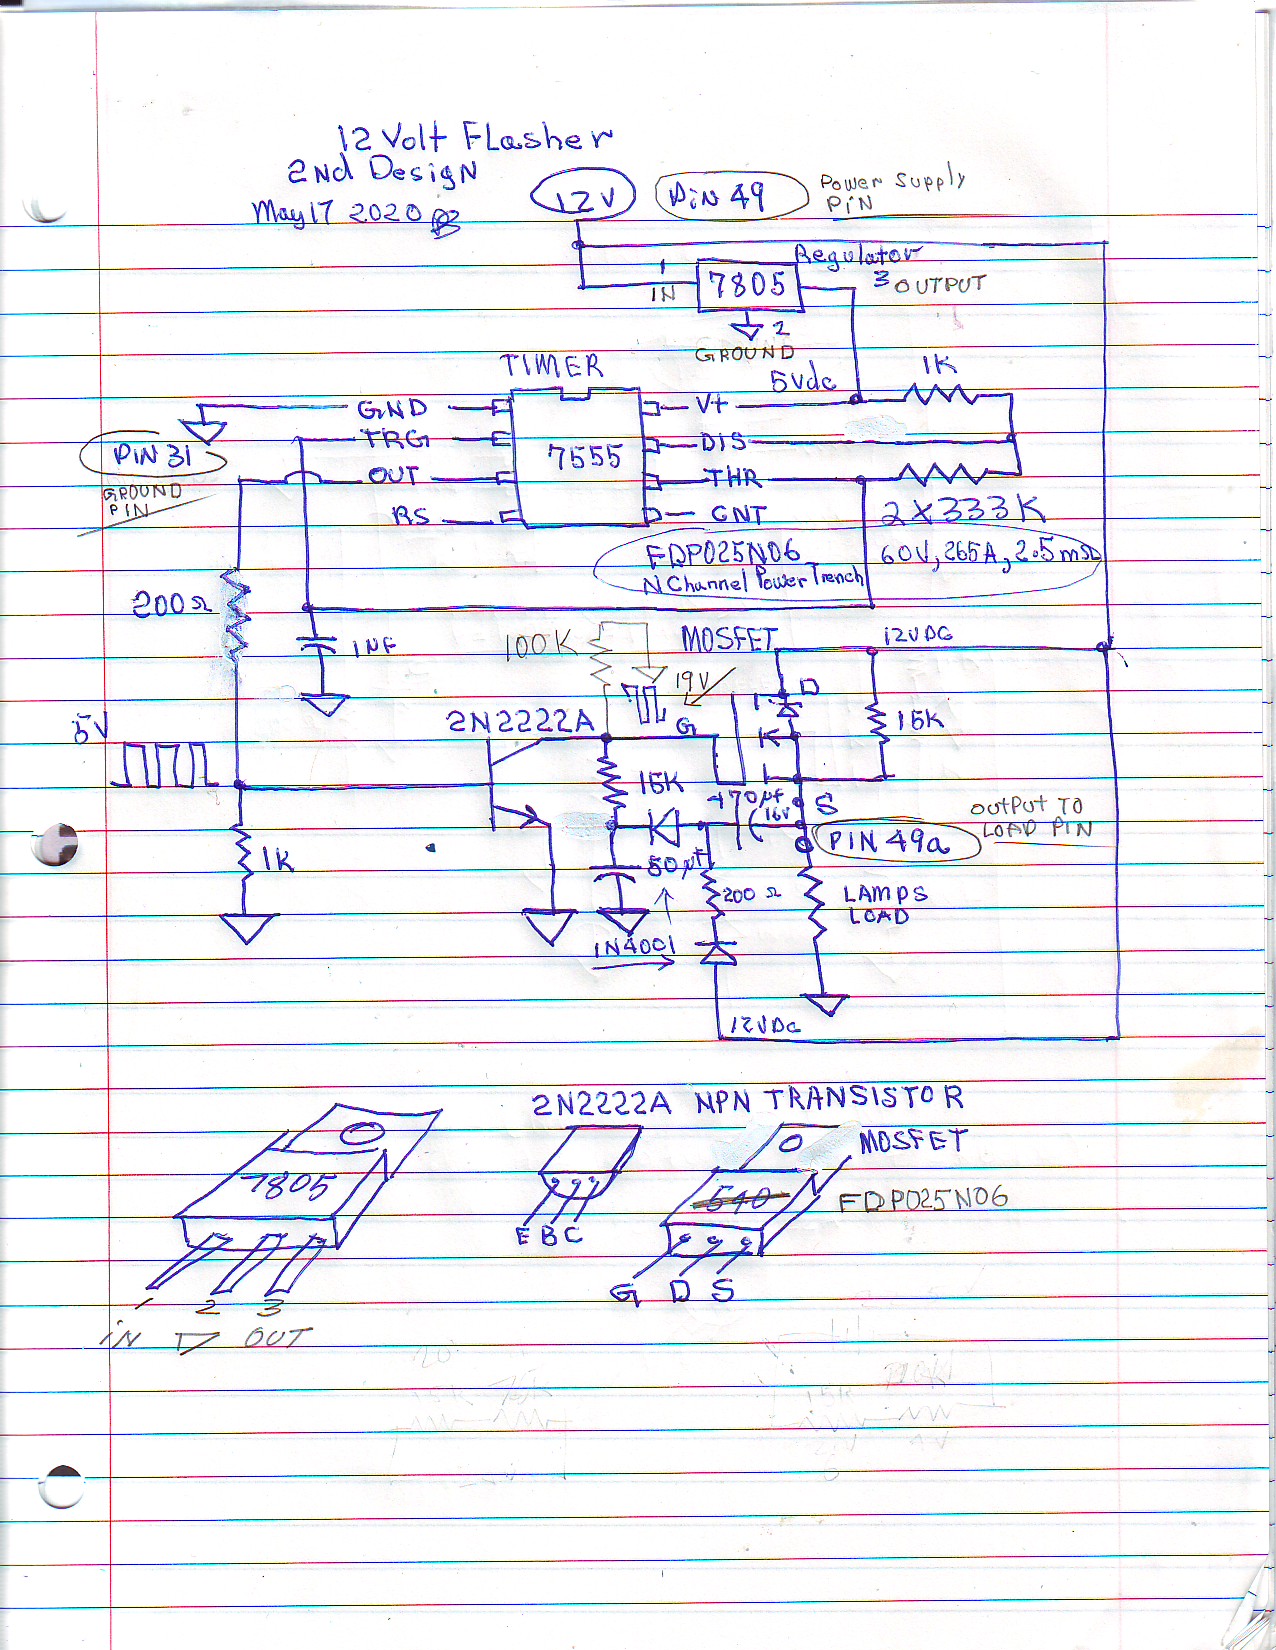 12 Volt FLasher
2Nd DesigN
May 17 2020
12V
PiN 49
Power Supply
PiN
Regulator
1
IN
7805
3 OUTPUT
2
GROUND
TIMER
5Vdc
1K
GND
V+
TRG
7555
DIS
PiN 31
OUT
THR
GROUND
PIN
RS
CNT
2 X 333K
FDP025N06
60V, 265A, 2.5mΩ
N Channel Power Trench
200Ω
1NF
100K
MOSFET
12VDC
19V
D
5V
2N2222A
G
15K
15K
470µf
16V
S
OUTPUT TO
LOAD PIN
PIN 49a
1K
50µf
200Ω
LAMPS
LOAD
1N4001
12VDC
2N2222A NPN TRANSISTOR
MOSFET
7805
540
FDP025N06
E B C
G D S
1 2 3
iN OUT